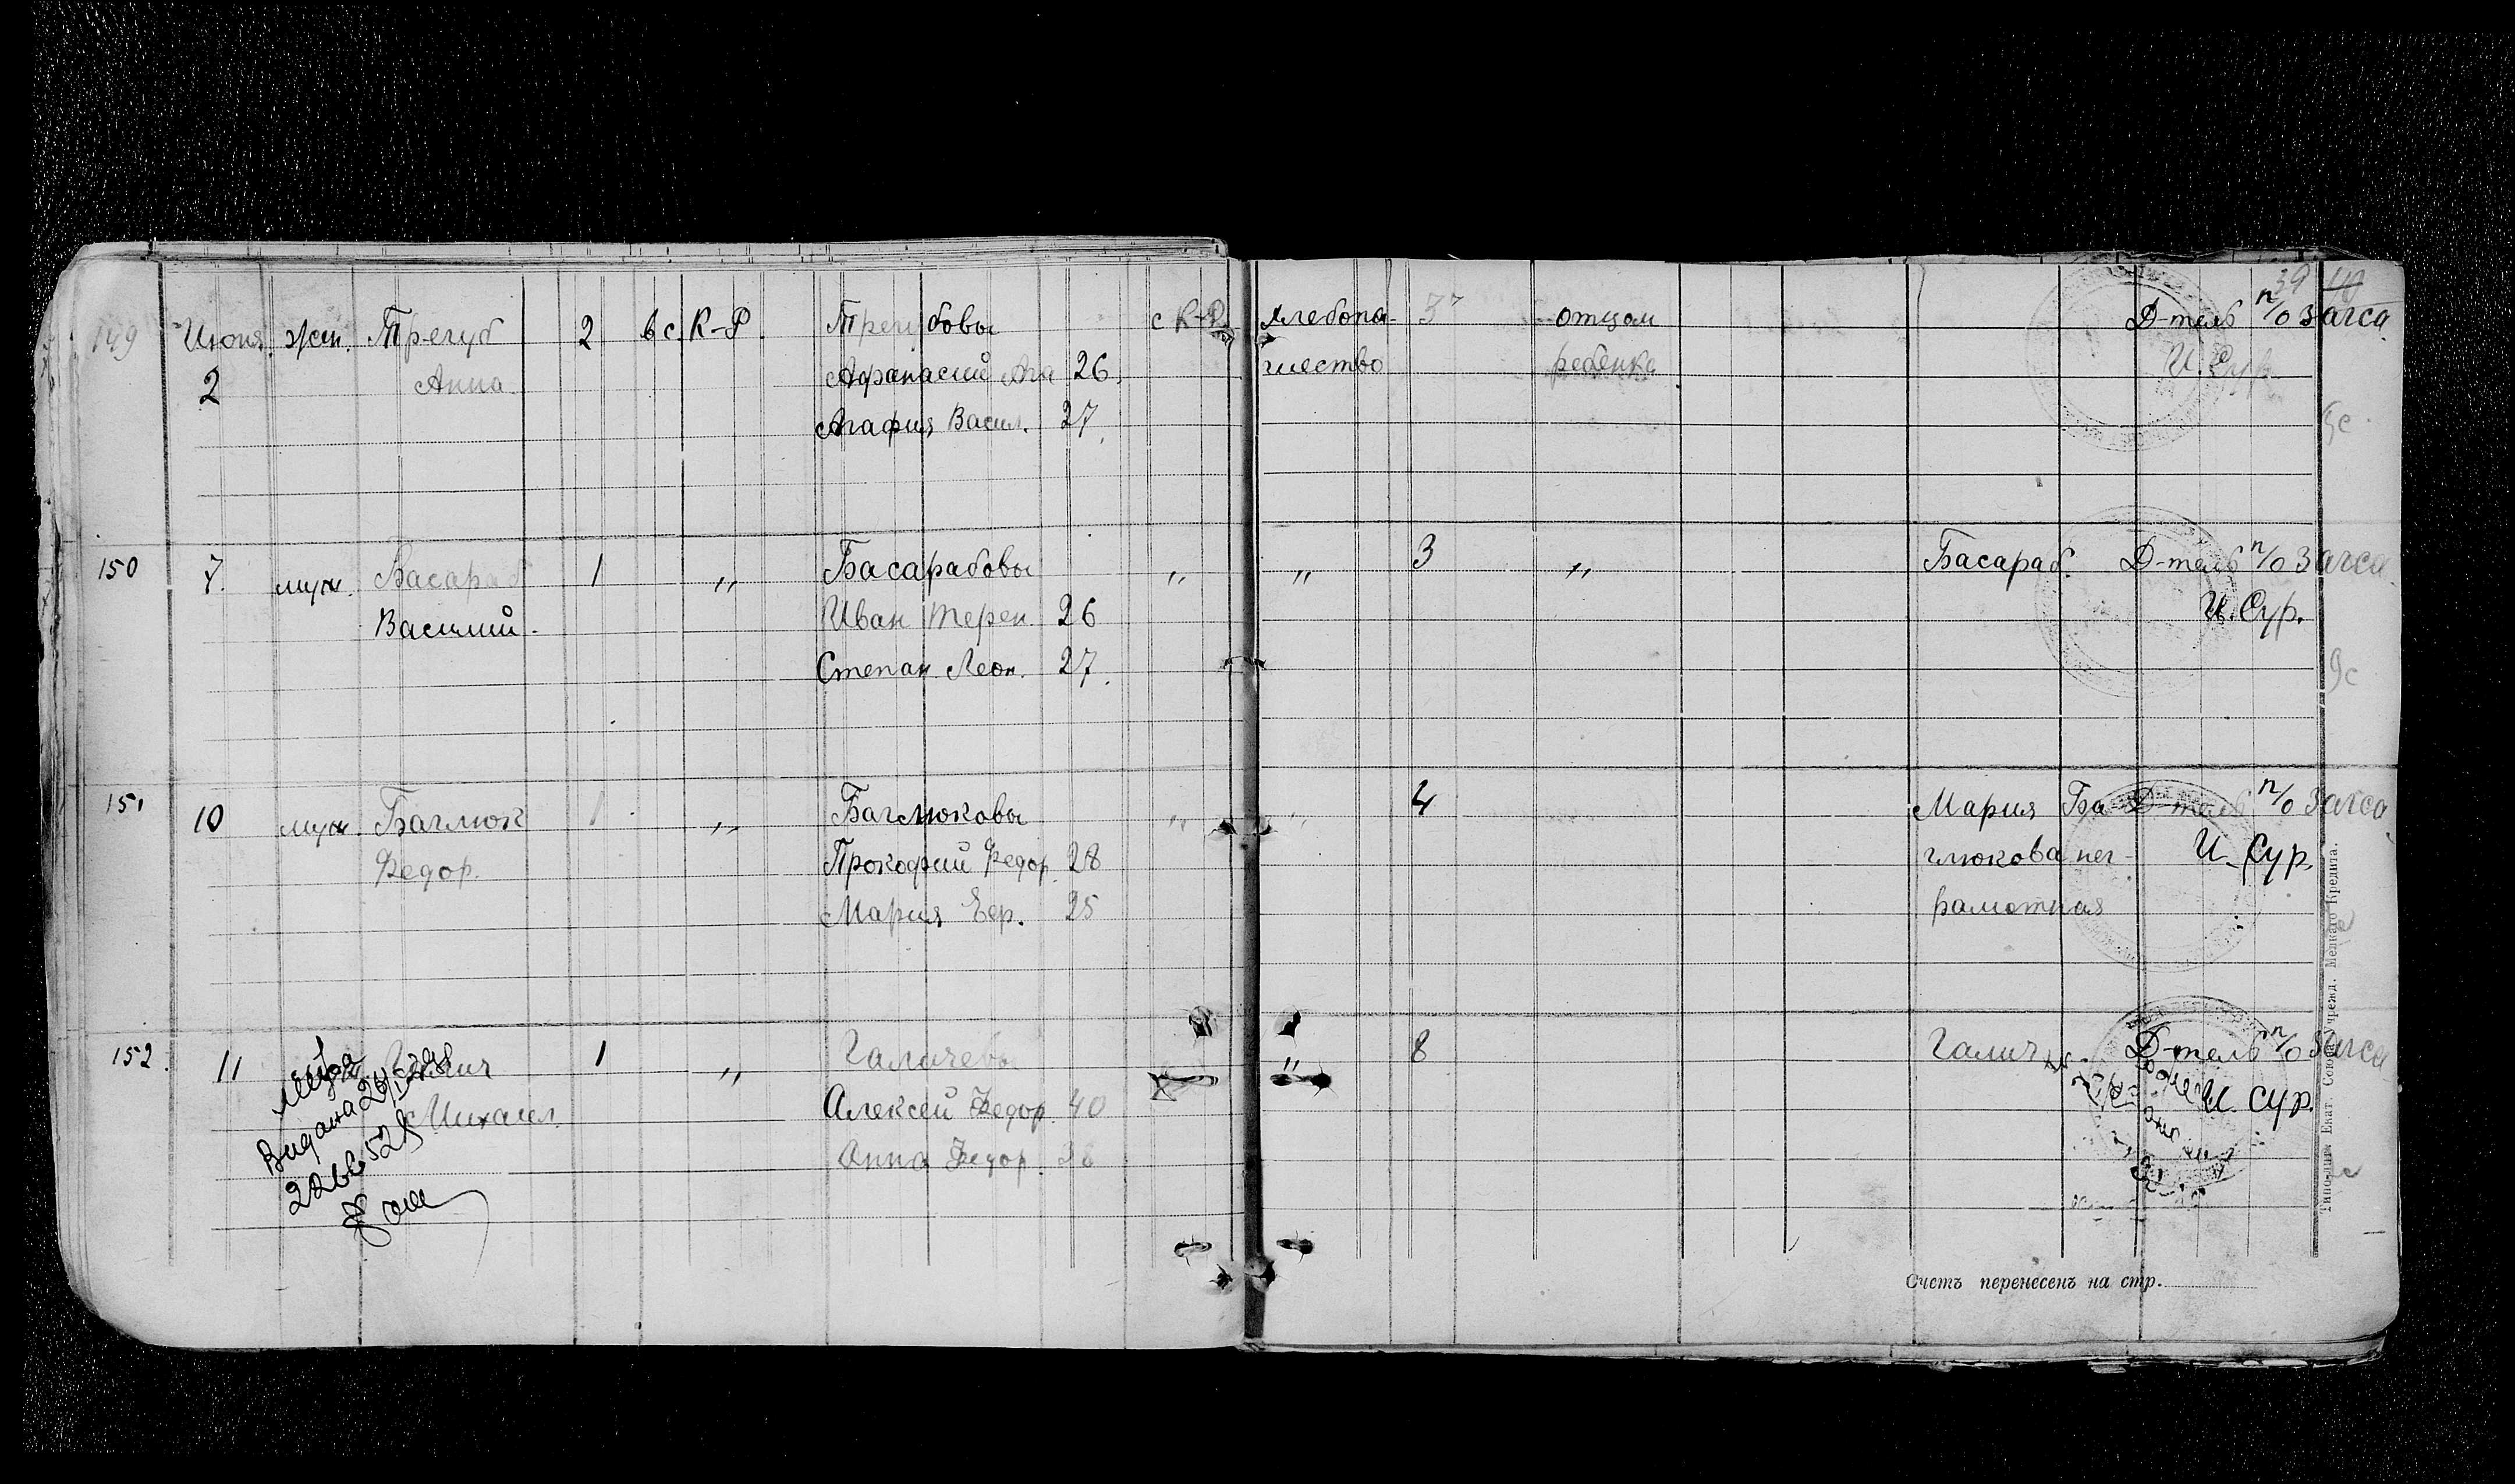 39 40
149 Июня жен. Трегуб 2 в с. К-Р. Трегубовы с К-Р. хлебопа- 3 отцом Д-тель п/о Загса
2 Анна Афанасий 26. шество ребенка И. Сур.
Агафия Васил. 27.
150 7. муж. Басараб 1 „ Басарабовы „ „ 3 „ Басараб. Д-тель п/о Загса
Василий. Иван Терен. 26 И. Сур.
Степан. Леон. 27.
151 10 муж. Баглюк 1 „ Баглюковы „ „ 4 Мария Ба Д-тель п/о Загса
Федор. Прокофий Федор. 28 глюкова нег- И. Сур.
Мария Еф. 25 рамотная
152. 11 Галич 1 „ Галичевы „ 8 Галич Д-тель п/о Загса
Михаил. Алексей Федор. 40 И. Сур.
Анна Федор.
Видана
Типо-лит. Екат. Союза Учрежд. Мелкаго Кредита.
Счетъ перенесенъ на стр.